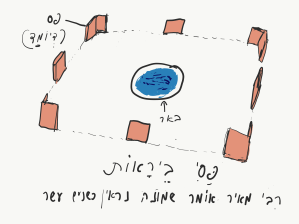 פס
(דיומד)
באר
פַּסֵּי בֵּירָאוֹת
רבי מאיר אומר שמונה נראין כשנים עשר